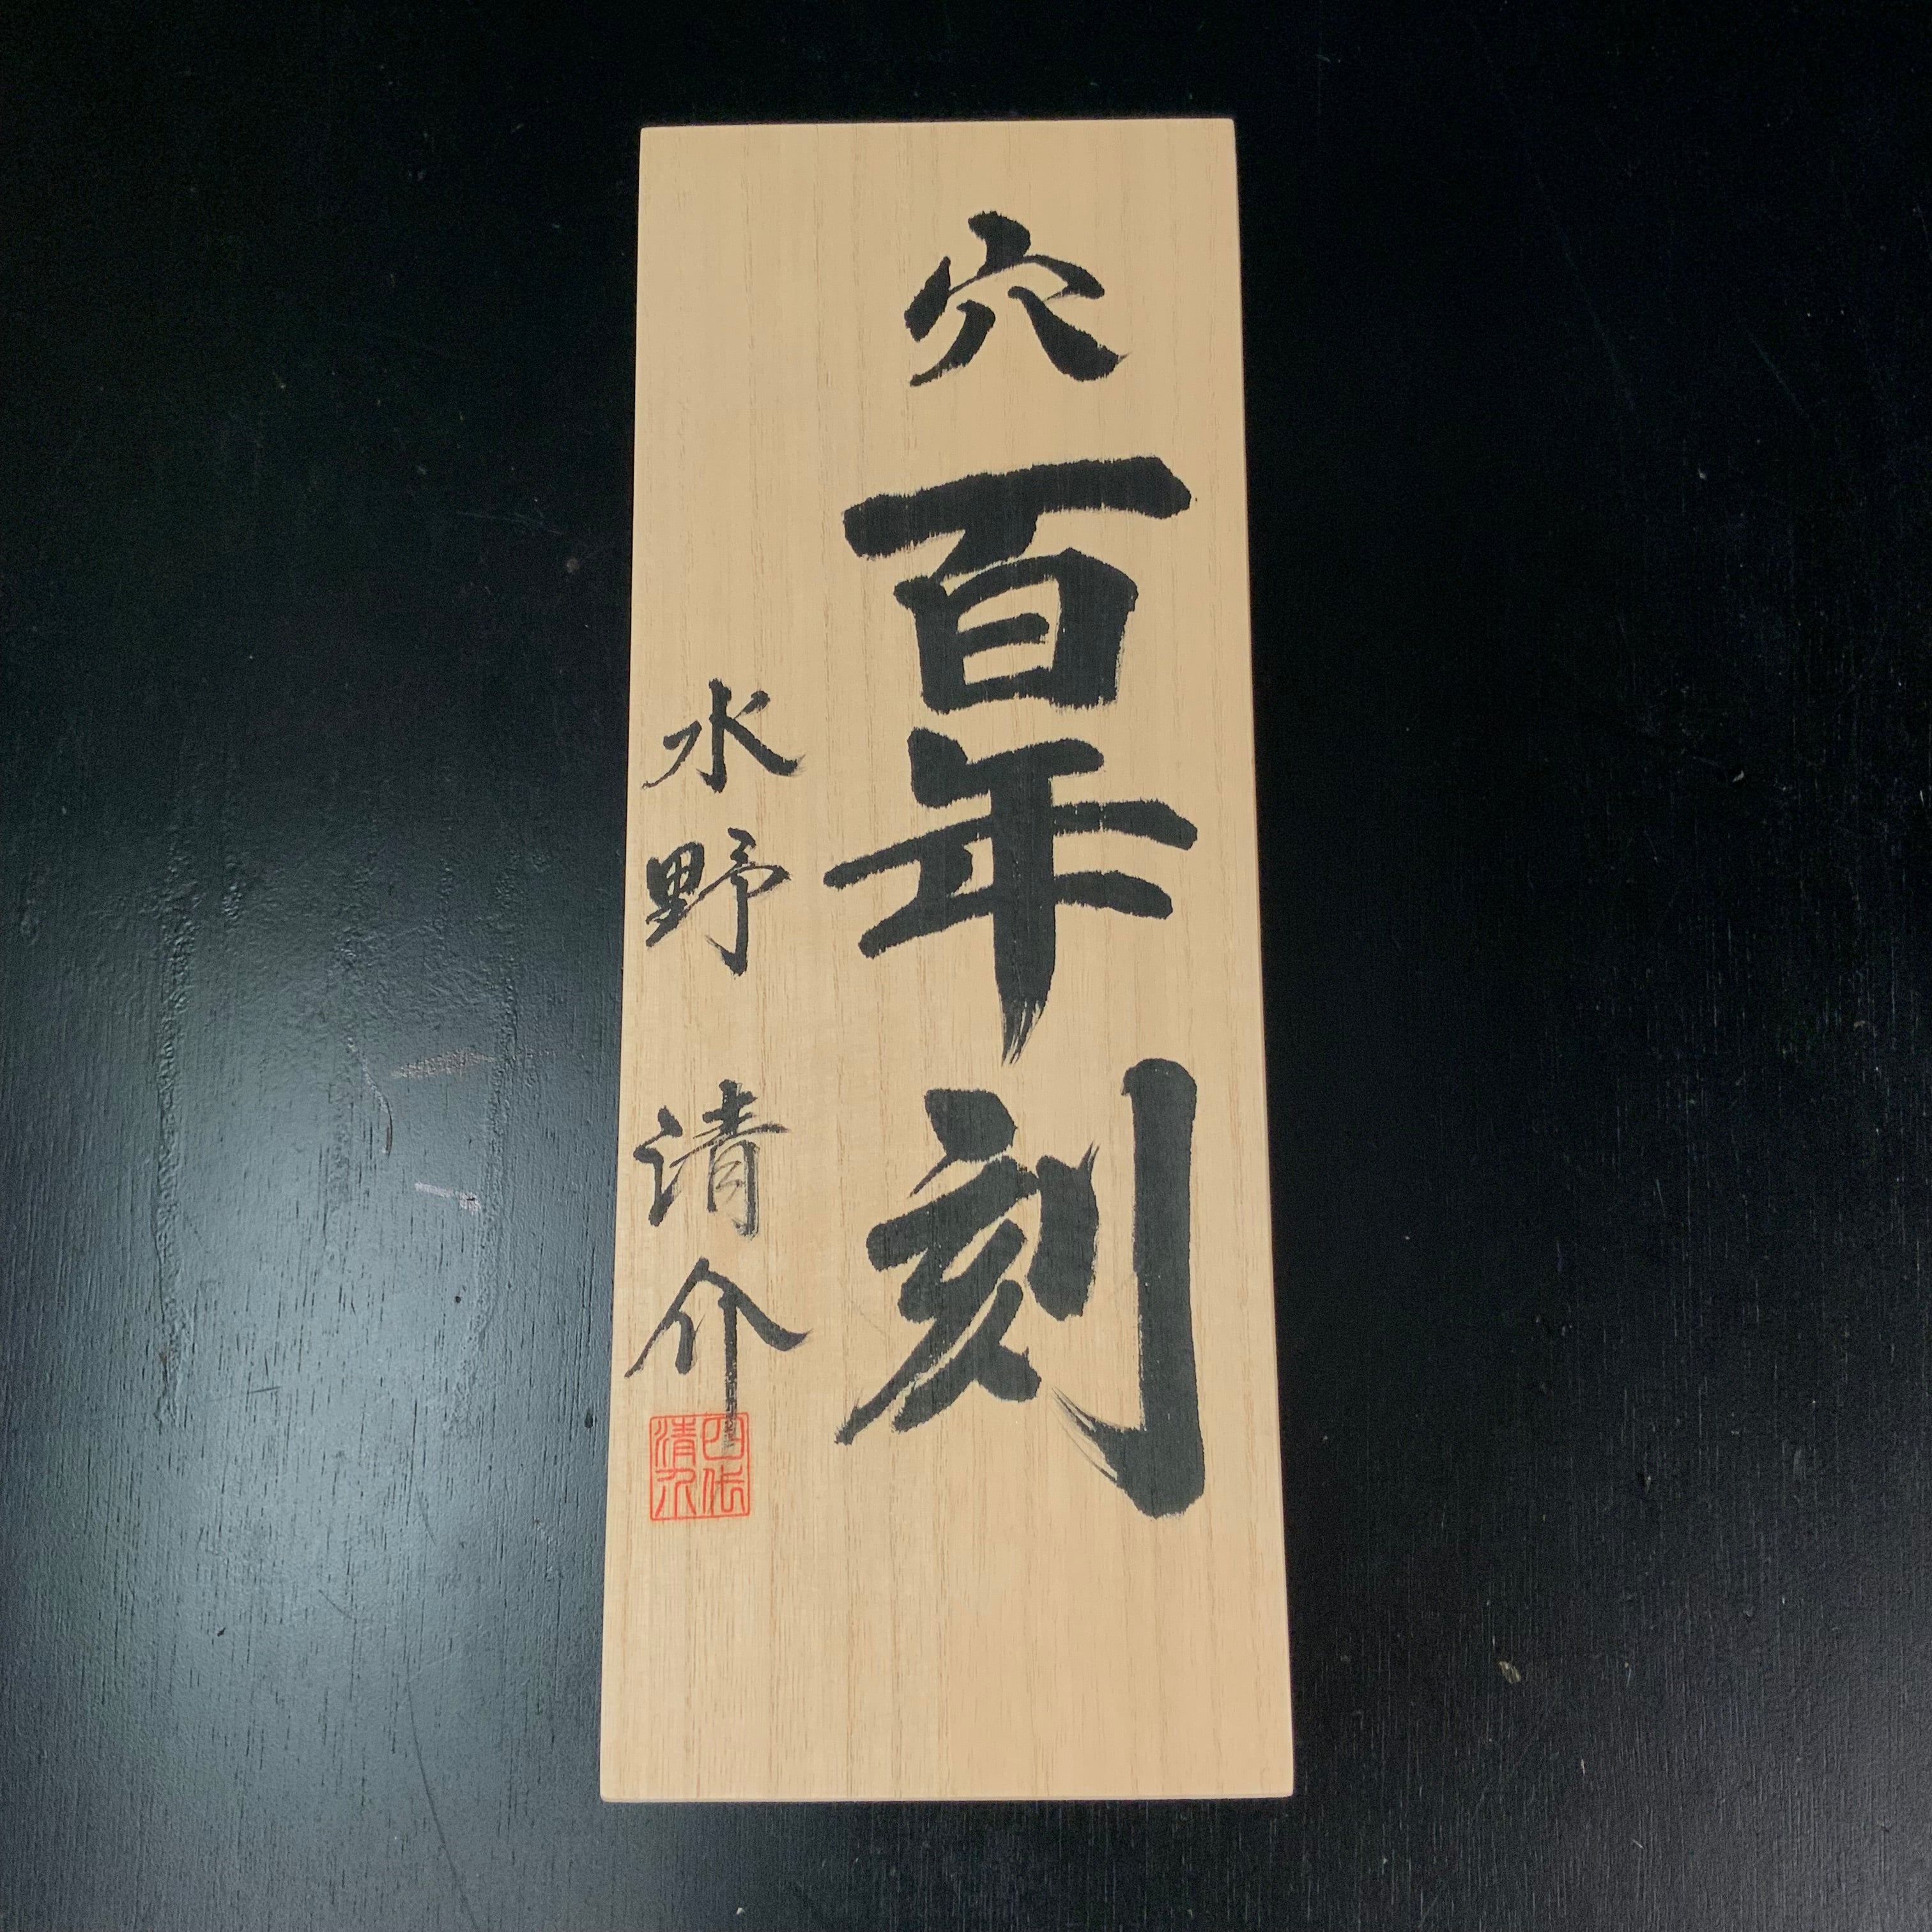 穴 百年刻
水野 清介